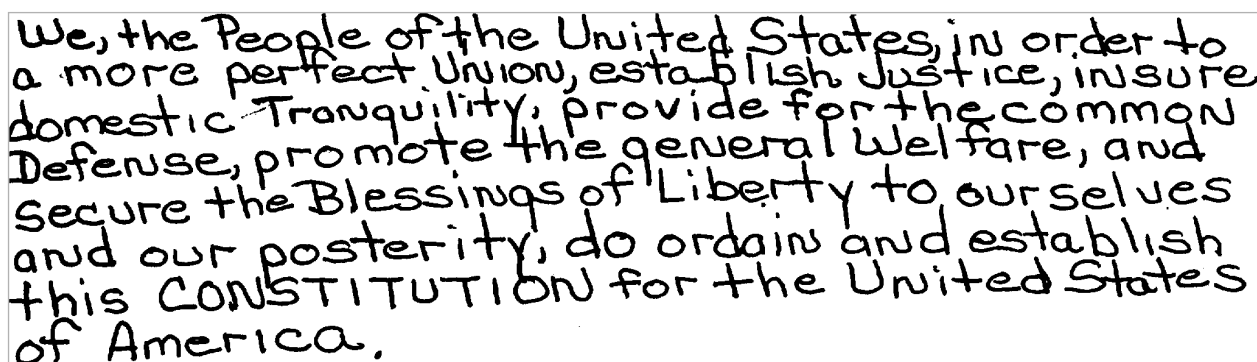 We, the People of the United States, in order to
a more perfect Union, establish Justice, insure
domestic Tranquility, provide for the common
Defense, promote the general Welfare, and
secure the Blessings of Liberty to ourselves
and our posterity, do ordain and establish
this CONSTITUTION for the United States
of America.